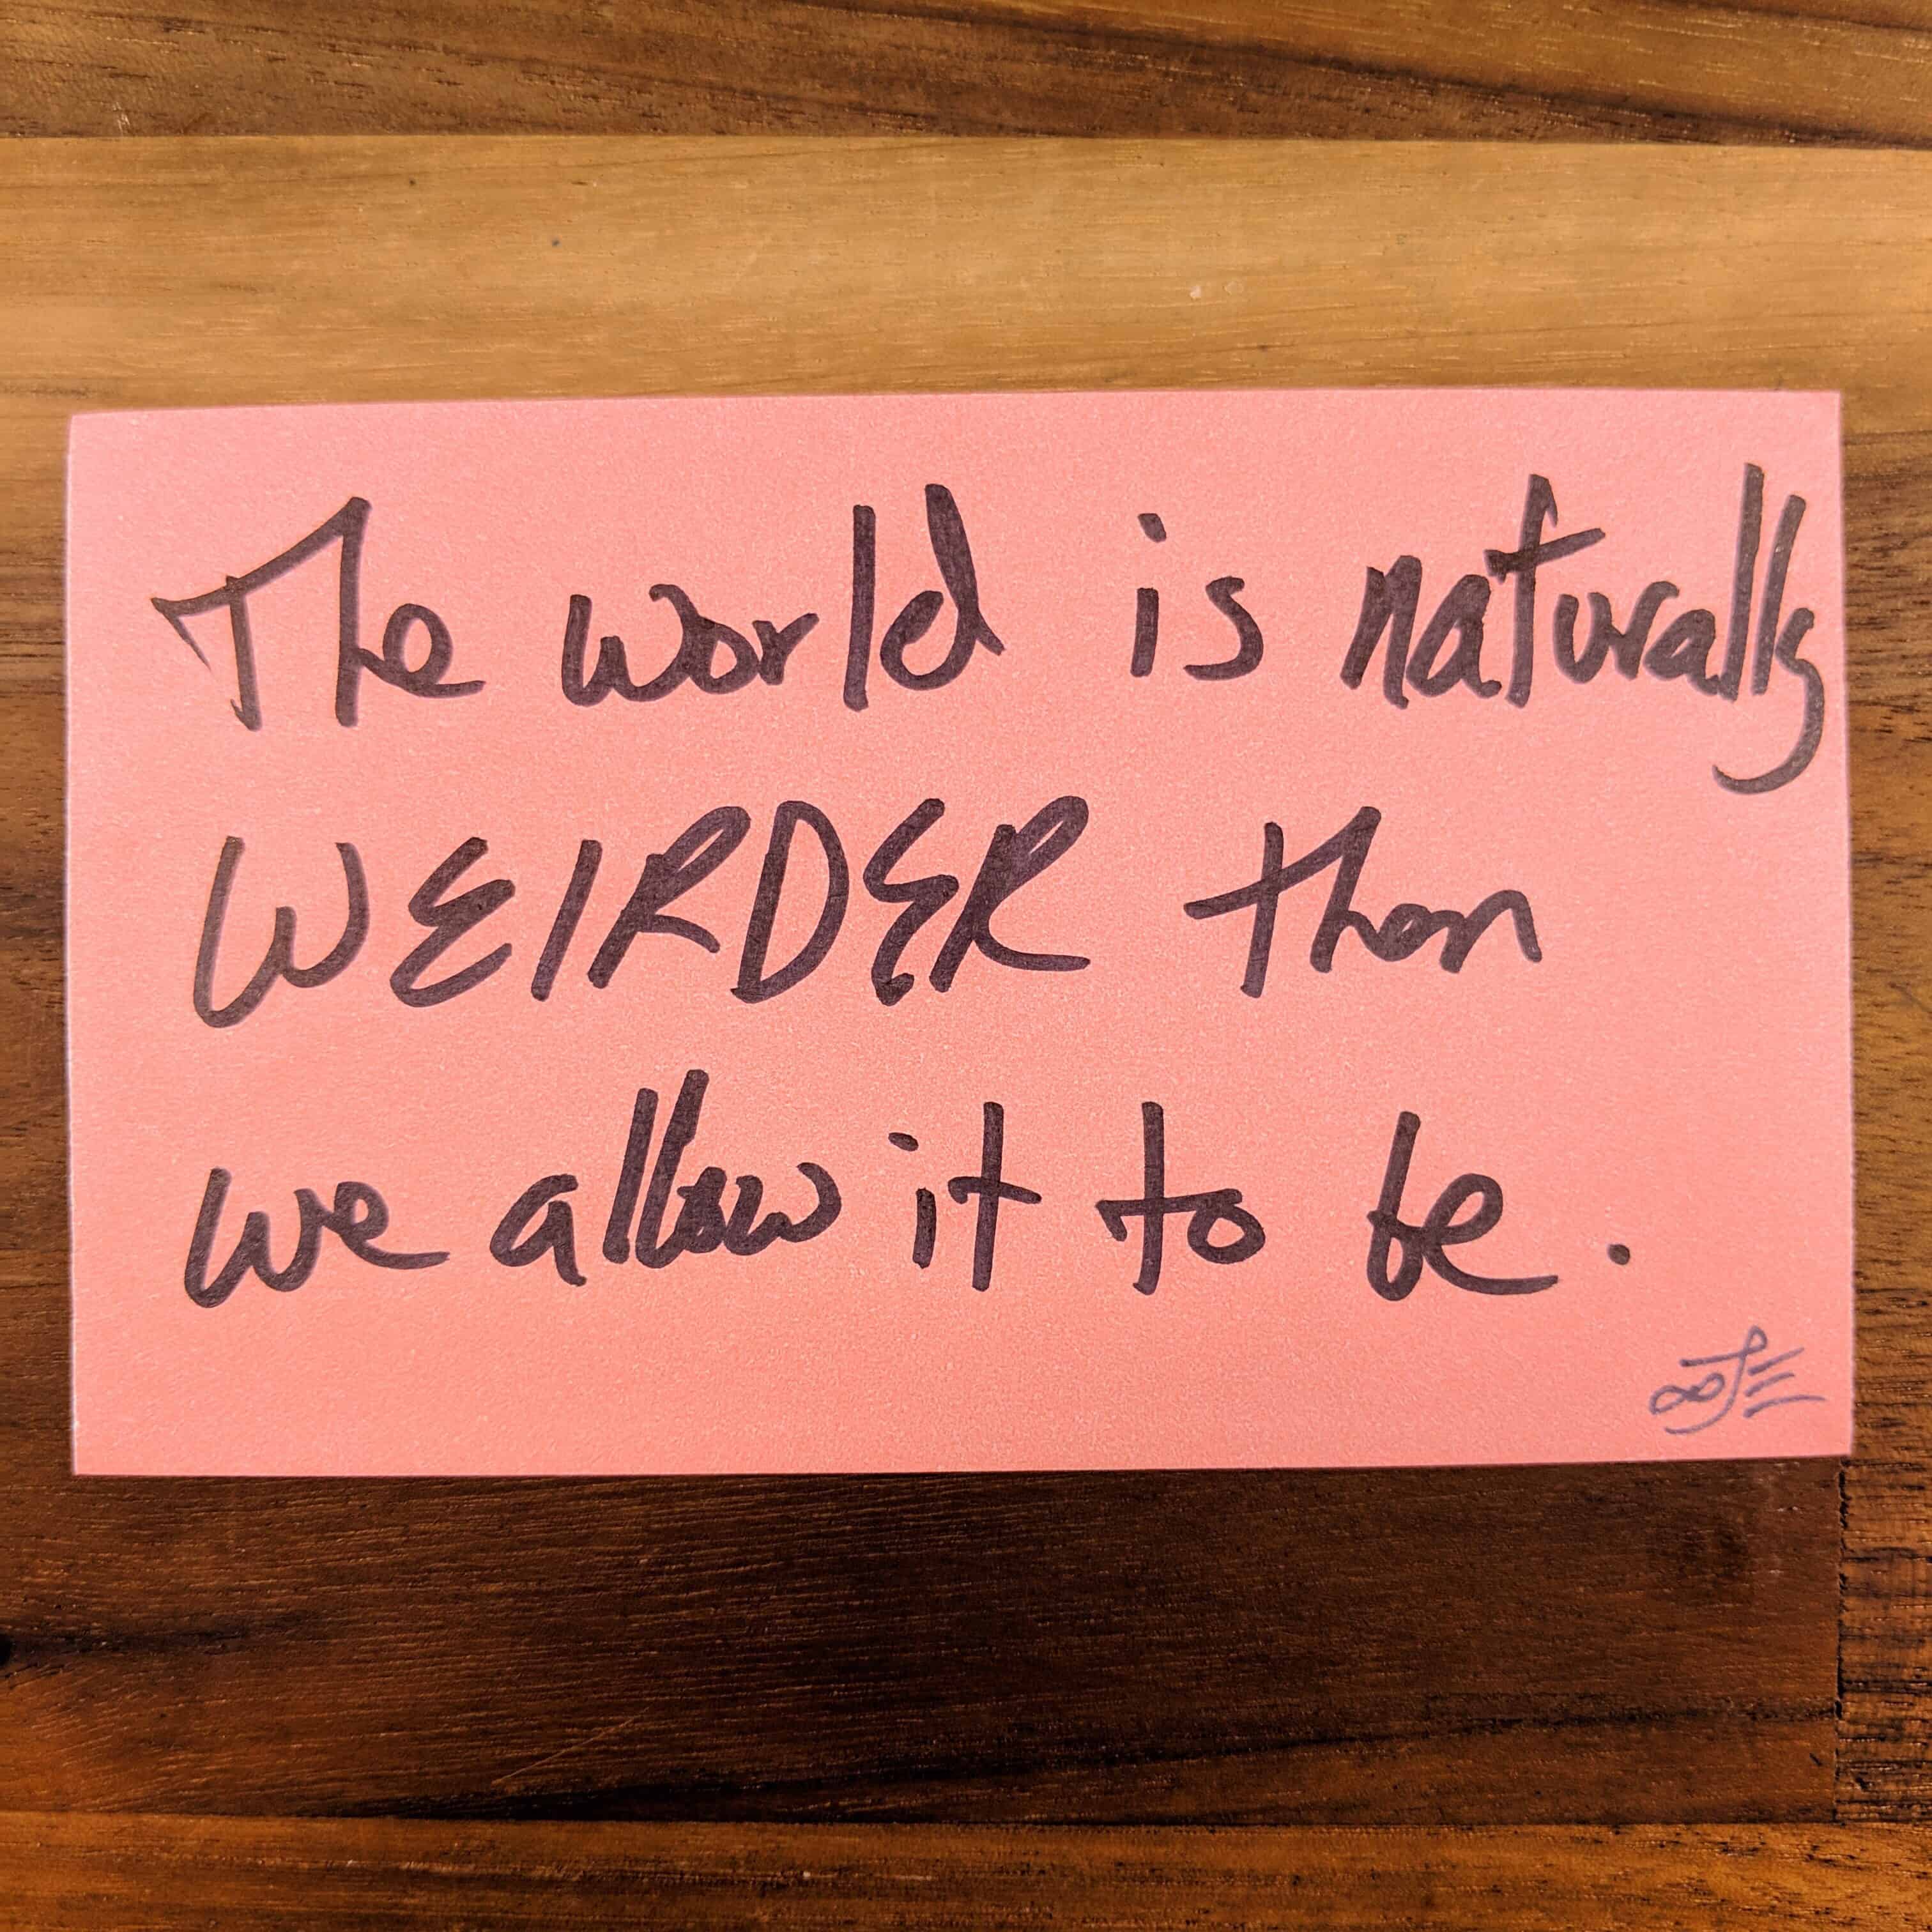 The world is naturally
WEIRDER than
we allow it to be.